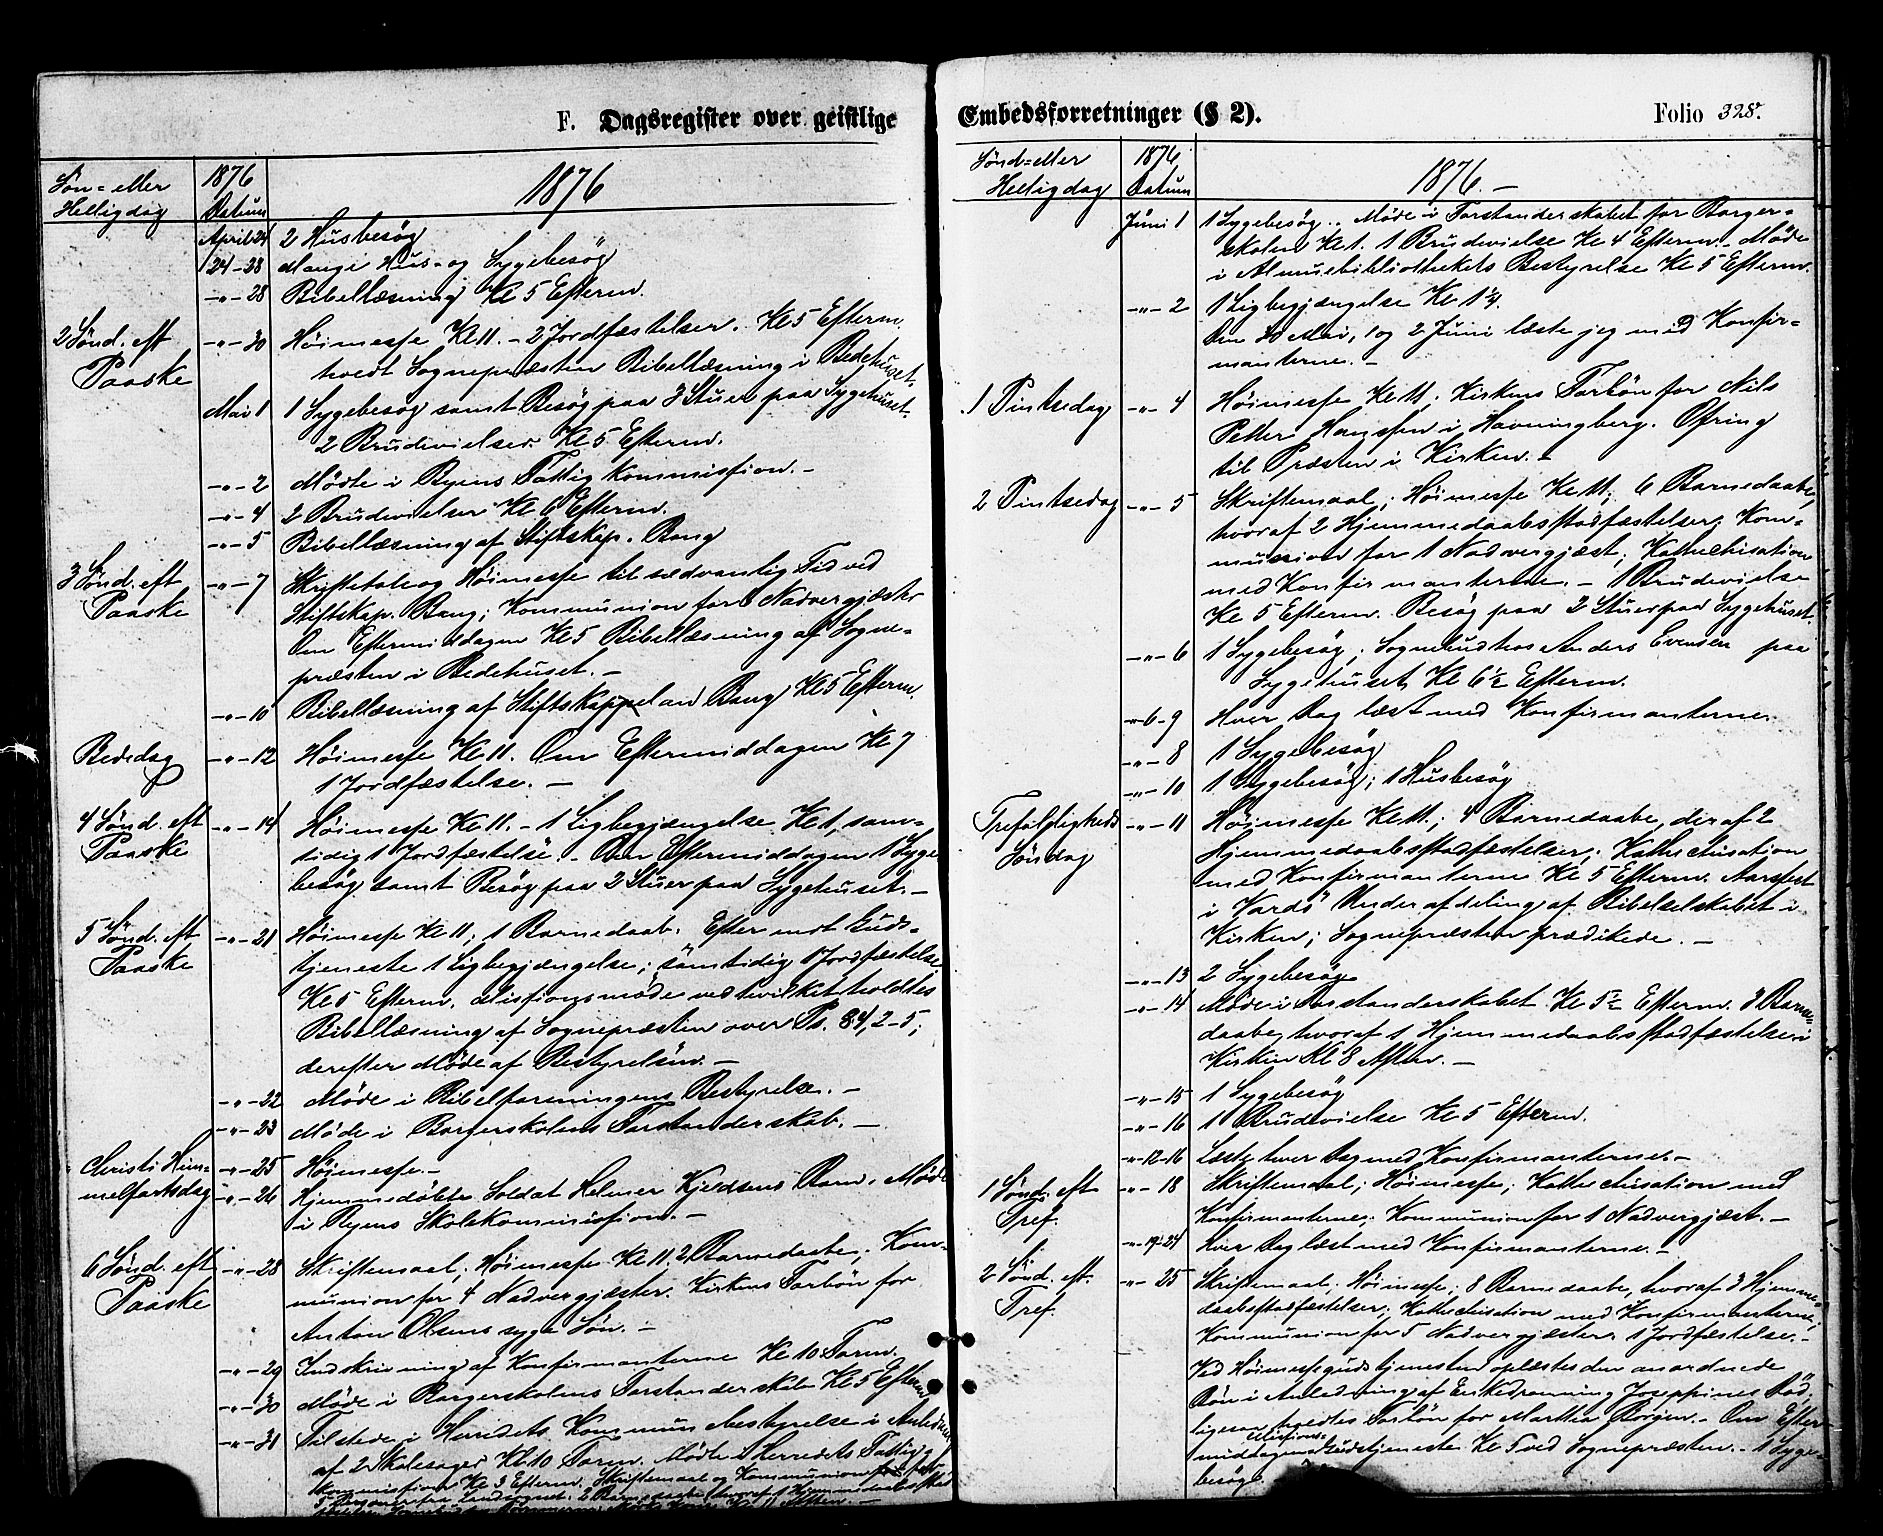 F. Dagsregister over geistlige
Søn- eller
Helligdag
1876
Datum
1876
April 24 2 Husbesøg
24-28 Mange Hus- og Sygebesøg
-"- 28 Bibellæsning Kl 5 Efterm.
2 Sønd. eft
Paaske
-"- 30 Høimesse Kl 11. - 2 Jordfæstelser. Kl 5 Efterm.
hvedt Sognepræsten Bibellæsning i Bedehuset.
Mai 1 1 Sygebesøg samt Besøg paa 3 Stuer paa Sygehuset.
2 Brudevielser Kl 5 Efterm.
-"- 2 Møde i Byens Fattigkommission. -
-"- 4 2 Brudevielser Kl 6 Efterm.
-"- 5 Bibellæsning af Stiftskap. Bang
3 Sønd. eft
Paaske
-"- 7 Skriftetale og Høimesse til sædvanlig Tid ved
Stiftskap. Bang; Kommunion for Nadvergjæster
Om Eftermiddagen Kl 5 Bibellæsning af Sogne-
præsten i Bedehuset. -
-"- 10 Bibellæsning af Stiftskappelan Bang Kl 5 Efterm.
Bededag
-"- 12 Høimesse Kl 11. Om Eftermiddagen Kl 7
1 Jordfæstelse. -
4 Sønd. eft
Paaske
-"- 14 Høimesse Kl 11. - 1 Ligbegjængelse Kl 1, sam-
tidig 1 Jordfæstelse. - Om Eftermiddagen 1 Syge
besøg samt Besøg paa 2 Stuer paa Sygehuset. -
5 Sønd. eft
Paaske
-"- 21 Høimesse Kl 11; 1 Barnedaab. Efter endt Guds-
tjeneste 1 Ligbegjængelse; samtidig 1 Jordfæstelse
Kl 5 Efterm. Missionsmøde ved hvilket holdtes
Bibellæsning af Sognepræsten over Ps. 84, 2-5;
derefter Møde af Bestyrelsen. -
-"- 22 Møde i Bibelforeningens Bestyrelse. -
-"- 23 Møde i Borgerskolens Forstanderskab. -
Christi Him-
melfartsdag
-"- 25 Høimesse. -
-"- 26 Hjemmedøbte Soldat Helmer Kjeldsens Barn. Møde
i Byens Skolekommission. -
6 Sønd. eft
Paaske
-"- 28 Skriftemaal; Høimesse Kl 11. 2 Barnedaabe; Kom-
munion for 4 Nadvergjæster. Kirkens Forbøn for
Anton Olsens syge Søn. -
-"- 29 Indskrivning af Konfirmanterne Kl 10 Form.
-"- 30 Møde i Borgerskolens Forstanderskab Kl 5 Efterm.
-"- 31 Tilstede i Herredets Kommunebestyrelse i Anledning
af 2 Skolesager Kl 10 Form. Møde i Herredets Fattig
kommission Kl 3 Efterm. Skriftemaal og Kommunion for
Embedsforretninger (§ 2).
Folio 328.
Sønd- eller
Helligdag
1876
Datum
1876. -
Juni 1 1 Sygebesøg. Møde i Forstanderskabet for Borger-
skolen Kl 1. 1 Brudevielse Kl 4 Efterm. - Møde
i Almuebibliothekets Bestyrelse Kl 5 Efterm.
-"- 2 1 Ligbegjængelse Kl 1 1/4.
Den 30 Mai, 1 og 2 Juni læste jeg med Konfir-
manterne. -
1 Pintsedag
-"- 4 Høimesse Kl 11. Kirkens Forbøn for Nils
Petter Hanssen i Havningberg. Ofring
til Præsten i Kirken. -
2 Pintsedag
-"- 5 Skriftemaal; Høimesse Kl 11; 6 Barnedaabe,
hvoraf 2 Hjemmedaabsstadfæstelser; Kom-
munion for 1 Nadvergjæst; Kathechisation
med Konfirmanterne. - 1 Brudevielse
Kl 5 Efterm. Besøg paa 2 Stuer paa Sygehuset.
-"- 6 1 Sygebesøg; Sognebud hos Anders Evensen paa
Sygehuset Kl 6 1/2 Efterm.
-"- 6-9 Hver Dag læst med Konfirmanterne.
-"- 8 1 Sygebesøg
-"- 10 1 Sygebesøg; 1 Husbesøg
Trefoldigheds
Søndag
-"- 11 Høimesse Kl 11; 4 Barnedaabe, deraf 2
Hjemmedaabsstadfæstelser; Kathechisation
med Konfirmanterne Kl 5 Efterm. Aarsfest
i Vardø Underafdeling af Bibelselskabet i
Kirken; Sognepræsten prædikede. -
-"- 13 2 Sygebesøg
-"- 14 Møde i Forstanderskabet Kl 5 1/2 Efterm. 3 Barne-
daabe, hvoraf 1 Hjemmedaabsstadfæstelse i
Kirken Kl 8 Aften. -
-"- 15 1 Sygebesøg
-"- 16 1 Brudevielse Kl 5 Efterm.
-"- 12-16 Læste hver Dag med Konfirmanterne. -
1 Sønd. eft
Tref.
-"- 18 Skriftemaal; Høimesse; Kathechisation med
Konfirmanterne; Kommunion for 1 Nadvergjæst. -
-"- 19-24 Hver Dag læst med Konfirmanterne. -
2 Sønd. eft.
Tref.
-"- 25 Skriftemaal; Høimesse; 8 Barnedaabe, hvoraf 3 Hjemme-
daabsstadfæstelser; Kathechisation med Konfirmanterne;
Kommunion for 5 Nadvergjæster. 1 Jordfæstelse. -
Ved Høimessegudstjenesten oplæstes den anordnede
Bøn i Anledning af Enkedronning Josephines Død.
Ligesaa Forbøn for Marthea Borgen. - Om Efter-
middagen Missions-Gudstjeneste Kl 5 ved Sognepræsten. - 1 Syge-
besøg.